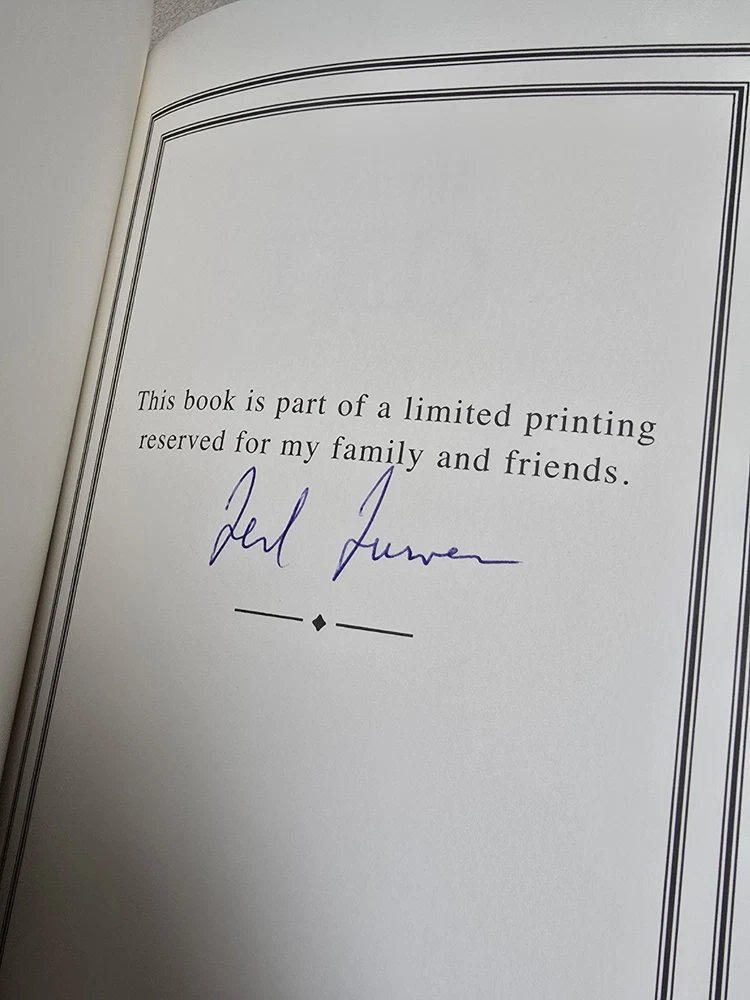 This book is part of a limited printing
reserved for my family and friends.